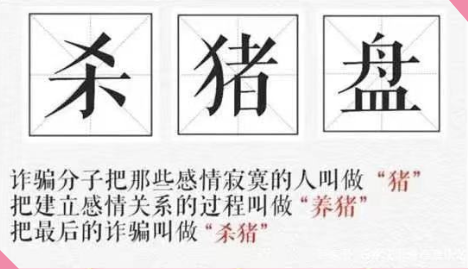 杀猪盘
诈骗分子把那些感情寂寞的人叫做“猪”
把建立感情关系的过程叫做“养猪”
把最后的诈骗叫做“杀猪”